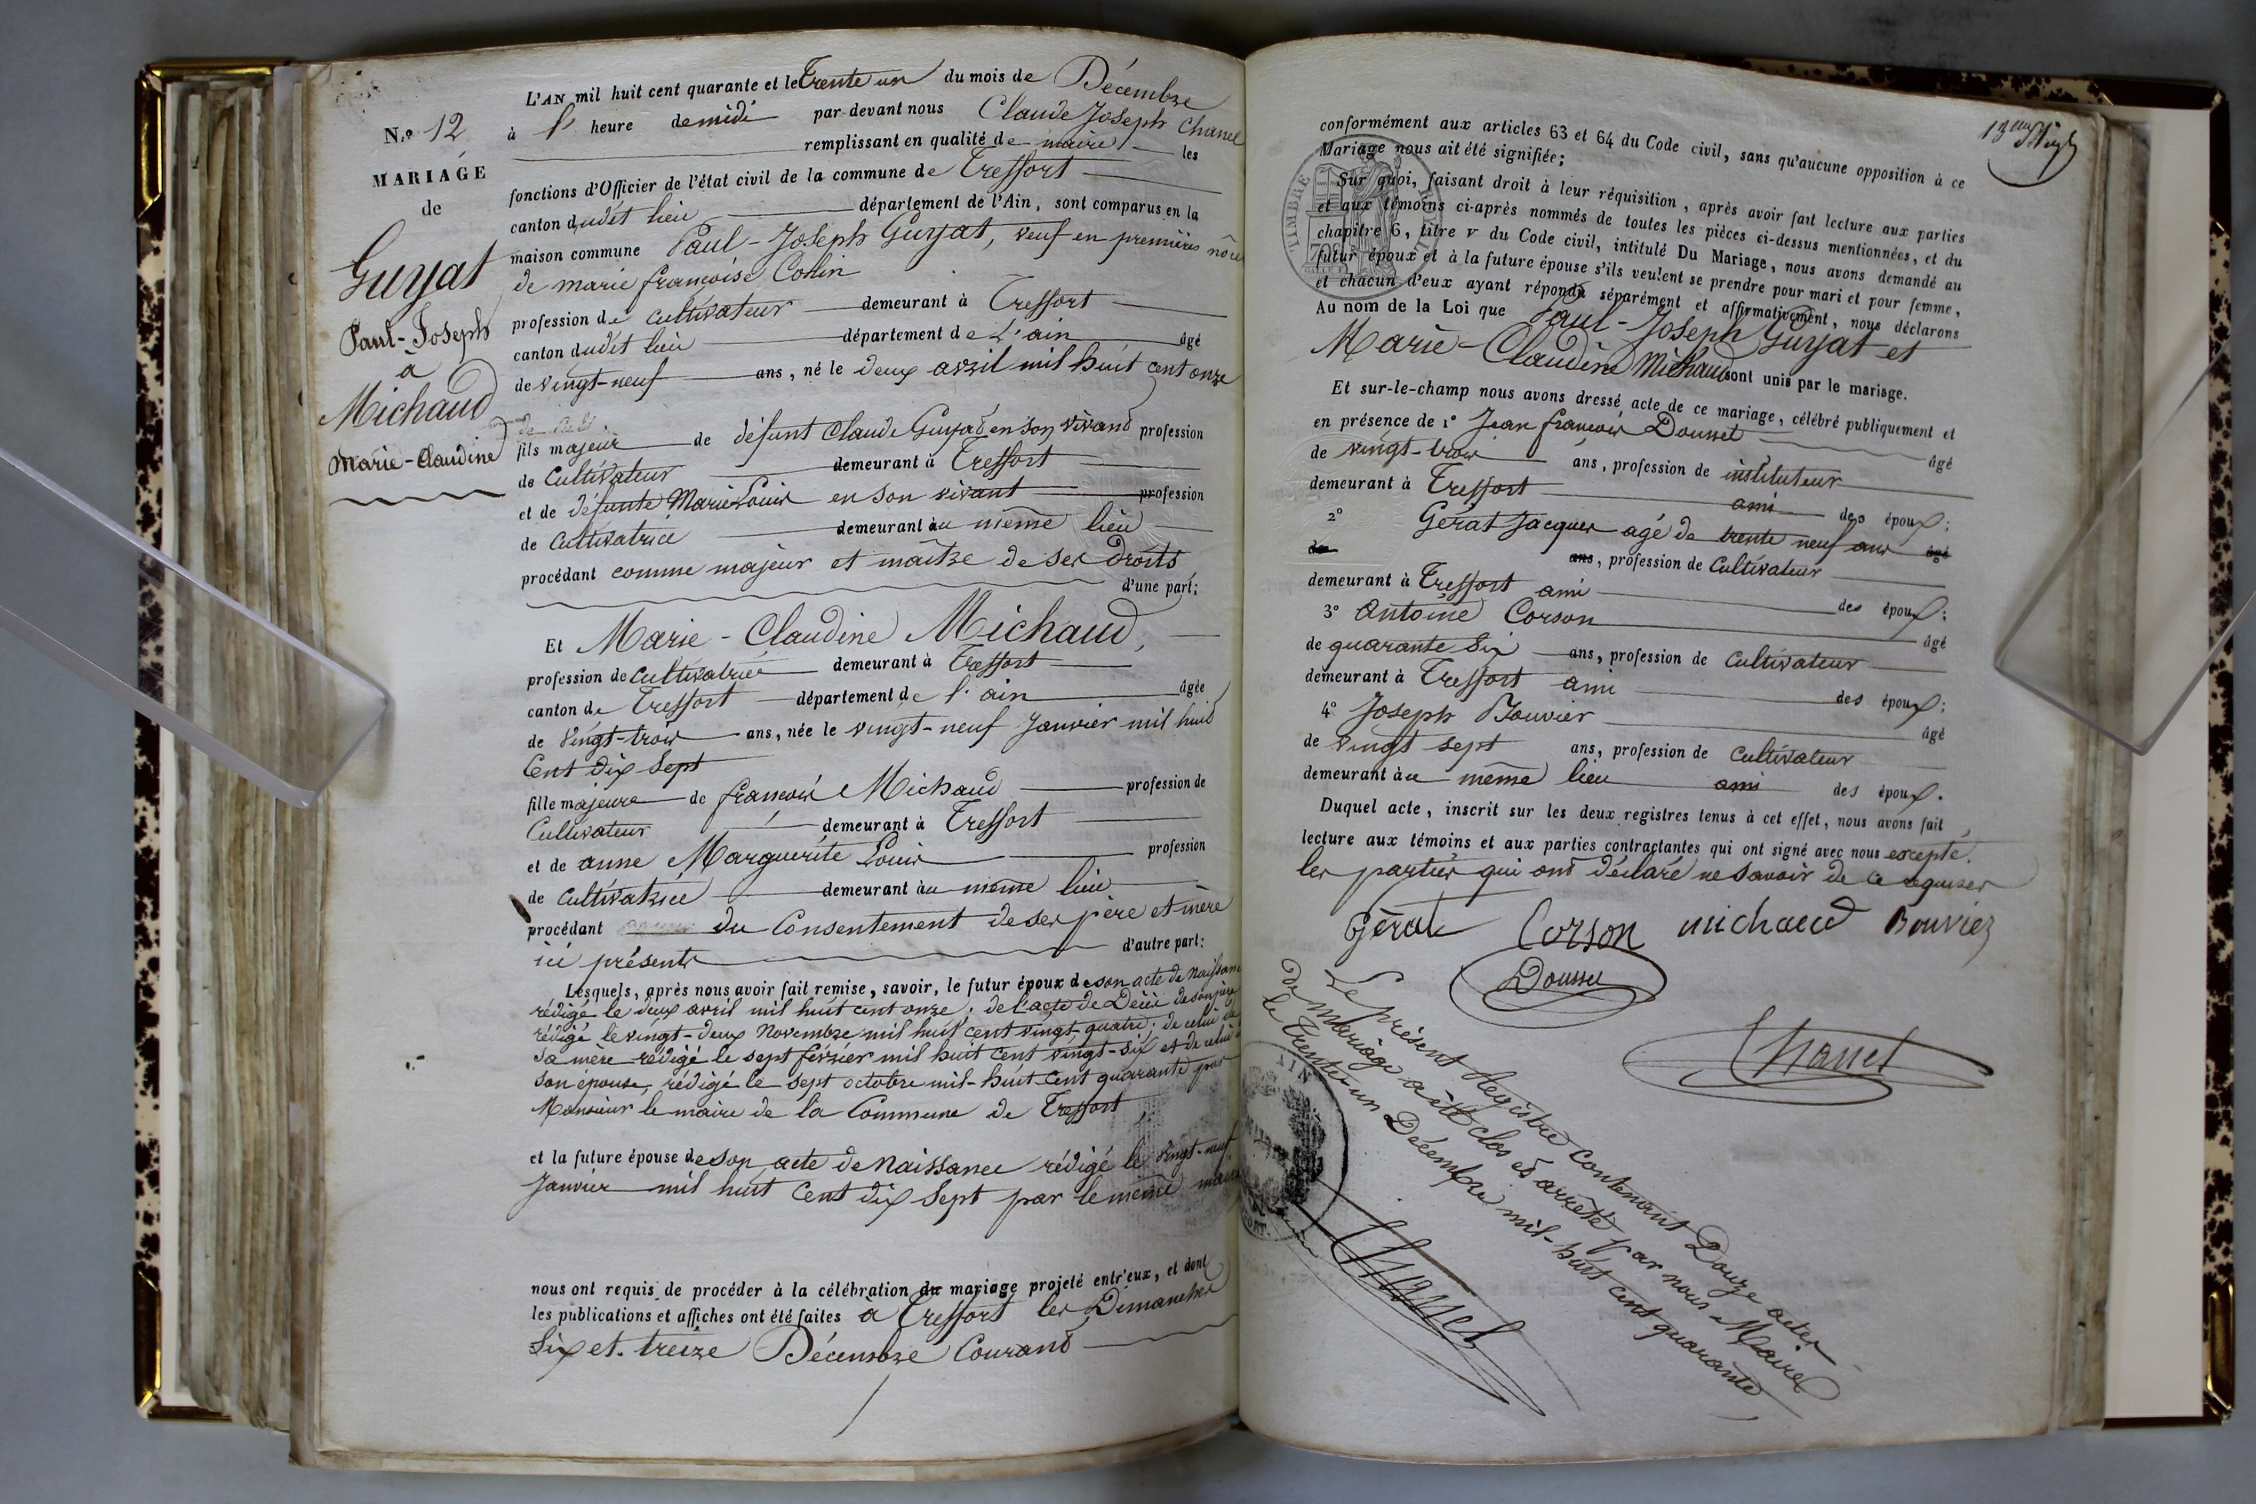 N.o 12
MARIAGE
de
Guyat
Paul-Joseph
a
Michaud
Marie-Claudine
L'AN mil huit cent quarante et le Trente un du mois de Décembre
à l' heure de midi par-devant nous Claude Joseph Chanel
remplissant en qualité de maire les
fonctions d'Officier de l'état civil de la commune de Treffort
canton dudit lieu département de l'Ain, sont comparus en la
maison commune Paul-Joseph Guyat, veuf en premières
de marie françoise Collin
profession de cultivateur demeurant à Treffort
canton dudit lieu département de L'ain âgé
de vingt-neuf ans, né le deux avril mil huit cent onze
fils majeur de défunt Claude Guyat en son vivant profession
de Cultivateur demeurant à Treffort
et de défunte Marie Louis en son vivant profession
de Cultivatrice demeurant au même lieu
procédant comme majeur et maître de ses droits
d'une part;
Et Marie-Claudine Michaud,
profession de cultivatrice demeurant à Treffort
canton de Treffort département de l'ain âgée
de vingt-trois ans, née le vingt-neuf Janvier mil huit
Cent dix sept
fille majeure de françois Michaud profession de
Cultivateur demeurant à Treffort
et de anne Marguerite Louis profession
de cultivatrice demeurant au même lieu
procédant du Consentement de ses père et mère
ici présents d'autre part;
Lesquels, après nous avoir fait remise, savoir, le futur époux de son acte de Naissance
rédigé le deux avril mil huit cent onze; de l'acte de Décès de son père
rédigé le vingt-deux Novembre mil huit cent vingt-quatre; de celui de
sa mère rédigé le sept février mil huit cent vingt-six et de celui
son épouse, rédigé le sept octobre mil-huit-cent quarante par
Monsieur le maire de la Commune de Treffort
et la future épouse de son acte de Naissance rédigé le vingt-neuf
Janvier mil huit Cent dix Sept par le même maire
nous ont requis de procéder à la célébration du mariage projeté entr'eux, et dont
les publications et affiches ont été faites à Treffort les Dimanches
Six et treize Décembre Courant
conformément aux articles 63 et 64 du Code civil, sans qu'aucune opposition à ce
Mariage nous ait été signifiée;
Sur quoi, faisant droit à leur réquisition, après avoir fait lecture aux parties
et aux témoins ci-après nommés de toutes les pièces ci-dessus mentionnées, et du
chapitre 6, titre v du Code civil, intitulé Du Mariage, nous avons demandé au
futur époux et à la future épouse s'ils veulent se prendre pour mari et pour femme,
et chacun d'eux ayant répondu séparément et affirmativement, nous déclarons
Au nom de la Loi que Paul-Joseph Guyat et
Marie-Claudine Michaud sont unis par le mariage.
Et sur-le-champ nous avons dressé acte de ce mariage, célébré publiquement et
en présence de 1° Jean françois Doussel âgé
de vingt-trois ans, profession de instituteur
demeurant à Treffort ami des époux;
2° Gérat Jacques agé de trente neuf ans âgé
de ans, profession de Cultivateur
demeurant à Treffort ami des époux;
3° Antoine Corson âgé
de quarante six ans, profession de Cultivateur
demeurant à Treffort ami des époux;
4° Joseph Bouvier âgé
de vingt sept ans, profession de Cultivateur
demeurant au même lieu ami des époux.
Duquel acte, inscrit sur les deux registres tenus à cet effet, nous avons fait
lecture aux témoins et aux parties contractantes qui ont signé avec nous excepté
les parties qui ont déclaré ne savoir de ce requises
Gérat Corson michaud Bouvier
Doussel
Chanel
Le présent Registre contenant Douze actes
de mariage a été clos et arrêté par nous Maire
le Trente-un Décembre mil-huit cent quarante
Chanel
TIMBRE ROYAL
AIN